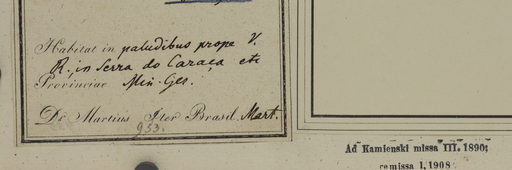 Habitat in paludibus prope V.
R. in Serra do Caraça etc
Provinciae Min. Ges.
Dr Martius Iter Brasil. Mart.
953.
Ad Kamienski missa III. 1890;
remissa I. 1908